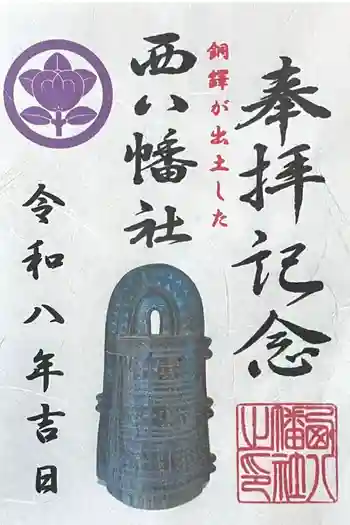 奉拝記念
銅鐸が出土した
西八幡社
令和八年吉日
西八
幡社
之印